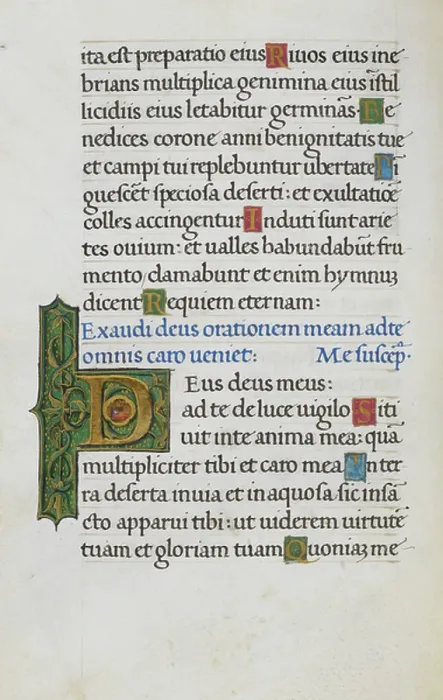 ita est preparatio eius Riuos eius ine
brians multiplica genimina eius ī stil
licidiis eius letabitur germinās· Be
nedices corone anni benignitatis tue
et campi tui replebuntur ubertate Pi
guescēt speciosa deserti: et exultatiōe
colles accingentur Induti sunt arie
tes ouium: et ualles habundabūt fru
mento/ clamabunt et enim hymnuʒ
dicent Requiem eternam:
Exaudi deus orationem meam ad te
omnis caro ueniet: Me suscēp·
Deus deus meus:
ad te de luce uigilo Siti
uit in te anima mea: quā
multipliciter tibi et caro mea In ter
ra deserta inuia et in aquosa sic in sā
cto apparui tibi: ut uiderem uirtutē
tuam et gloriam tuam Quoniaʒ me